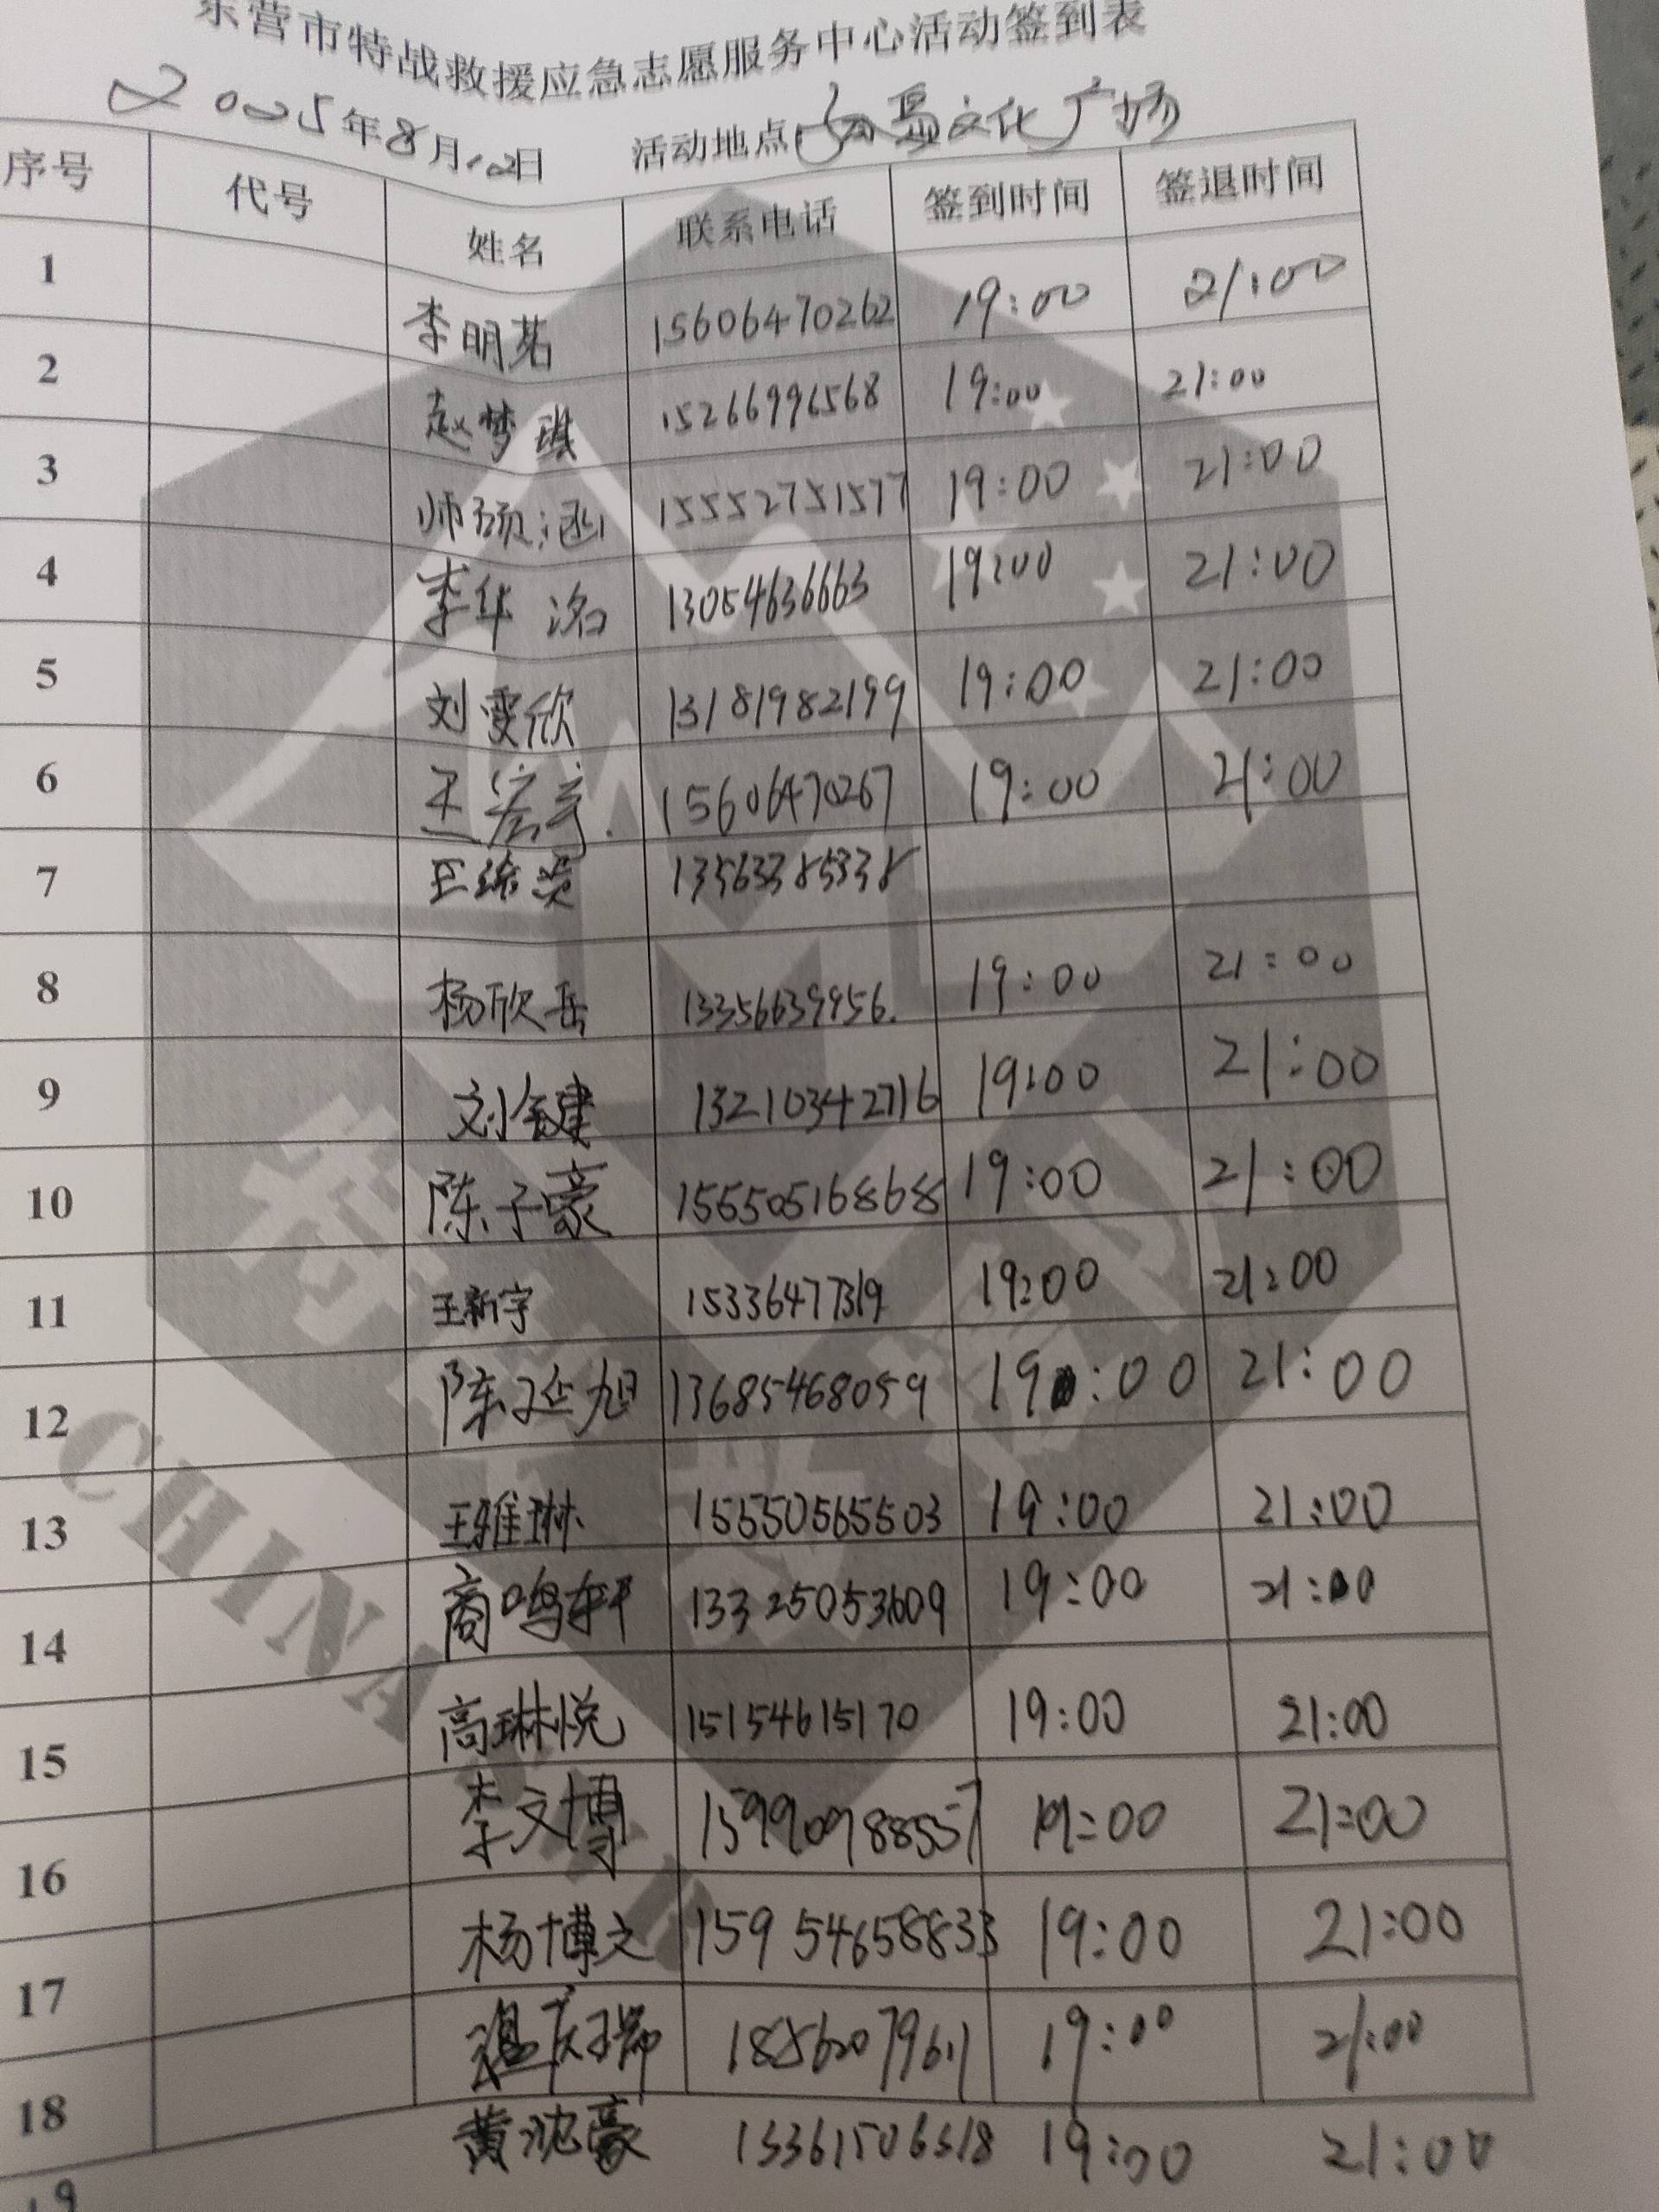 东营市特战救援应急志愿服务中心活动签到表
2025年8月12日 活动地点 文化广场
序号 代号 姓名 联系电话 签到时间 签退时间
1 李明茗 15606470262 19:00 21:00
2 赵梦琪 15266996568 19:00 21:00
3 师硕涵 15552751577 19:00 21:00
4 李华洺 13054636663 19:00 21:00
5 刘雯欣 13181982199 19:00 21:00
6 王宏亮 15606470267 19:00 21:00
7 13563385338
8 杨欣岳 13356639956. 19:00 21:00
9 刘金建 13210342716 19:00 21:00
10 陈子豪 15550516868 19:00 21:00
11 王新宇 15336477319 19:00 21:00
12 陈廷旭 13685468059 19:00 21:00
13 王雅琳 15550565503 19:00 21:00
14 商鸣轩 13325053609 19:00 21:00
15 高琳悦 15154615170 19:00 21:00
16 李文博 15990988557 19:00 21:00
17 杨博文 15954658833 19:00 21:00
18 温庆瑞 19:00 21:00
19 黄沈豪 13361506518 19:00 21:00
CHINA